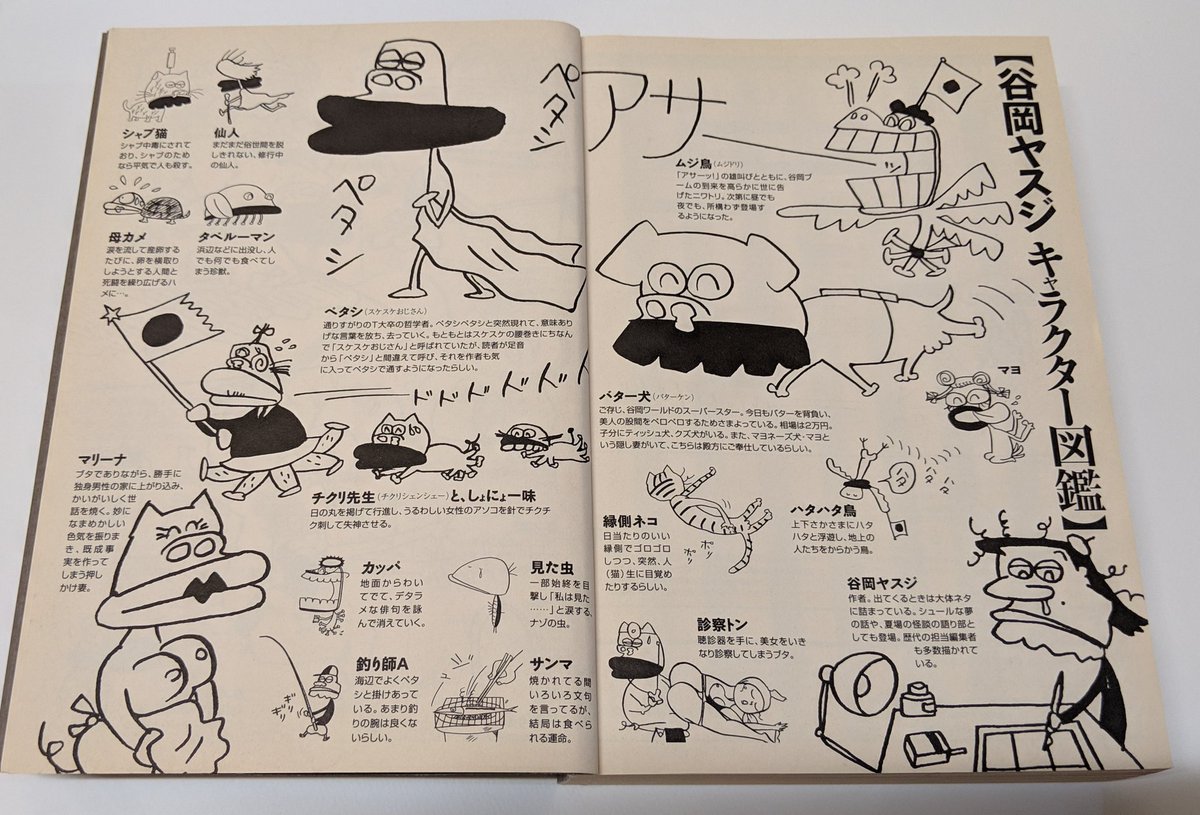 【谷岡ヤスジ キャラクター図鑑】
アサー
ッ
ムジ鳥(ムジドリ)
「アサーッ!」の雄叫びとともに、谷岡ブ
ームの到来を高らかに世に告
げたニワトリ。次第に昼でも
夜でも、所構わず登場す
るようになった。
バター犬(バターケン)
ご存じ、谷岡ワールドのスーパースター。今日もバターを背負い、
美人の股間をペロペロするためさまよっている。相場は2万円。
子分にティッシュ犬、クズ犬がいる。また、マヨネーズ犬・マヨと
いう隠し妻がいて、こちらは殿方にご奉仕しているらしい。
マヨ
縁側ネコ
日当たりのいい
縁側でゴロゴロ
しつつ、突然、人
(猫)生に目覚め
たりするらしい。
ボリ
ボリ
ハタハタ鳥
上下さかさまにハタ
ハタと浮遊し、地上の
人たちをからかう鳥。
診察トン
聴診器を手に、美女をいき
なり診察してしまうブタ。
谷岡ヤスジ
作者。出てくるときは大体ネタ
に詰まっている。シュールな夢
の話や、夏場の怪談の語り部と
しても登場。歴代の担当編集者
も多数描かれて
いる。
シャブ猫
シャブ中毒にされて
おり、シャブのため
なら平気で人も殺す。
仙人
まだまだ俗世間を脱
しきれない、修行中
の仙人。
母カメ
涙を流して産卵する
たびに、卵を横取り
しようとする人間と
死闘を繰り広げるハ
メに…。
タベルーマン
浜辺などに出没し、人
でも何でも食べてし
まう珍獣。
ペタシ
ペタシ
ペタシ(スケスケおじさん)
通りすがりのT大卒の哲学者。ペタシペタシと突然現れて、意味あり
げな言葉を放ち、去っていく。もともとはスケスケの腰巻きにちなん
で「スケスケおじさん」と呼ばれていたが、読者が足音
から「ペタシ」と間違えて呼び、それを作者も気
に入ってペタシで通すようになったらしい。
ドドドドドド
チクリ先生(チクリシェンシェー)と、しょにょ一味
日の丸を掲げて行進し、うるわしい女性のアソコを針でチクチ
ク刺して失神させる。
マリーナ
ブタでありながら、勝手に
独身男性の家に上がり込み、
かいがいしく世
話を焼く。妙に
なまめかしい
色気を振りま
き、既成事
実を作って
しまう押し
かけ妻。
カッパ
地面からわい
てでて、デタラ
メな俳句を詠
んで消えていく。
見た虫
一部始終を目
撃し「私は見た
……」と涙する、
ナゾの虫。
釣り師A
海辺でよくペタ
シと掛けあって
いる。あまり釣
りの腕は良くな
いらしい。
ギリ
ギリ
サンマ
焼かれてる間
いろいろ文句
を言ってるが、
結局は食べら
れる運命。